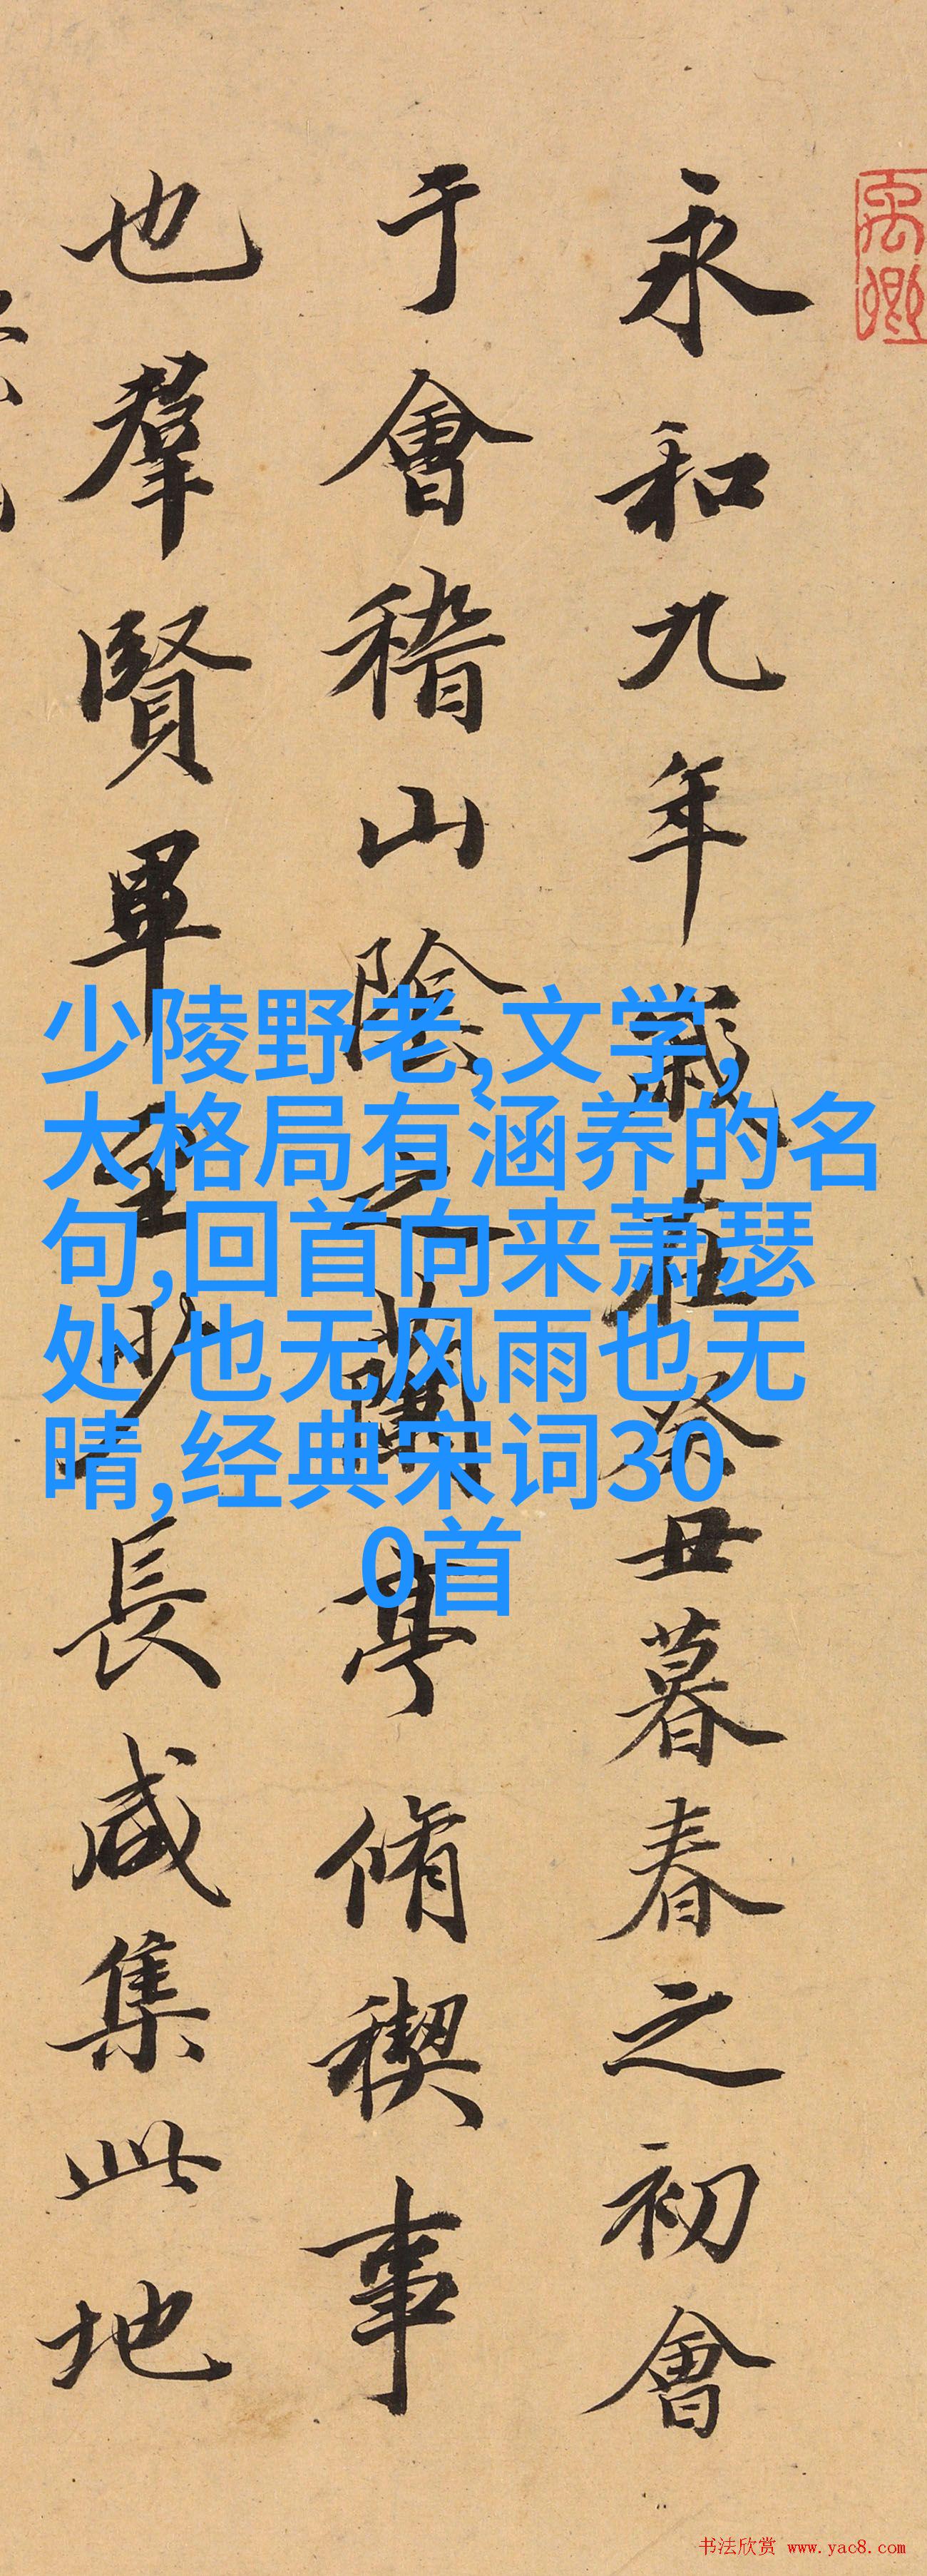 永和九年歲在癸丑暮春之初會
于會稽山陰之蘭亭脩稧事
也羣賢畢至少長咸集此地
少陵野老,文学,
大格局有涵养的名
句,回首向来萧瑟
处 也无风雨也无
晴,经典宋词30
0首
书法欣赏 www.yac8.com